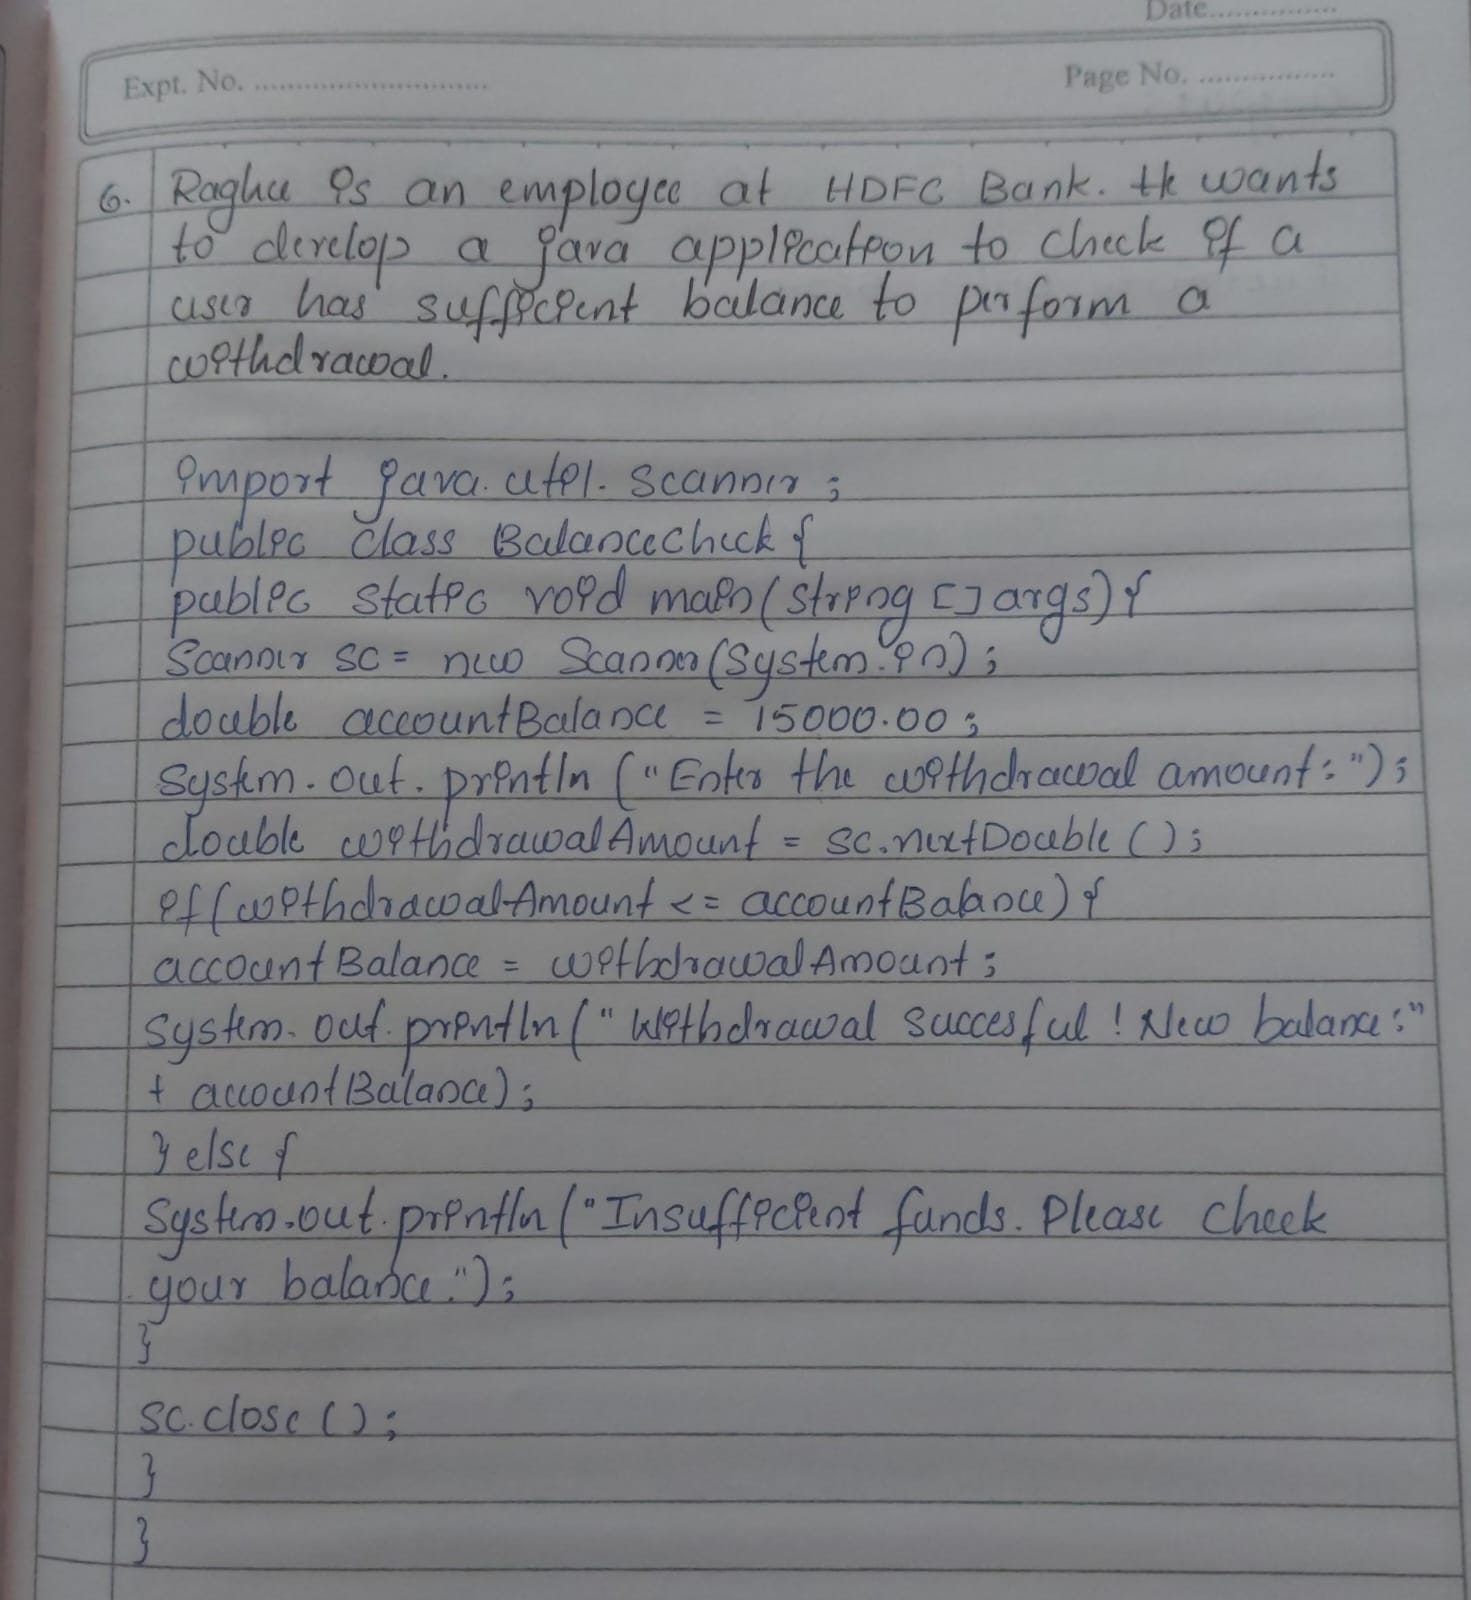 Date...............
Expt. No. ..............................
Page No. .................
6. Raghu is an employee at HDFC Bank. He wants
to develop a java application to check if a
user has sufficient balance to perform a
withdrawal.
import java.util.Scanner;
public class BalanceCheck {
public static void main(String [] args) {
Scanner sc = new Scanner(System.in);
double accountBalance = 15000.00;
System.out.println ("Enter the withdrawal amount:");
double withdrawalAmount = sc.nextDouble ();
if(withdrawalAmount <= accountBalance) {
accountBalance = withdrawalAmount;
System.out.println("Withdrawal succesful! New balance:"
+ accountBalance);
} else {
System.out.println("Insufficient funds. Please check
your balance.");
}
sc.close ();
}
}